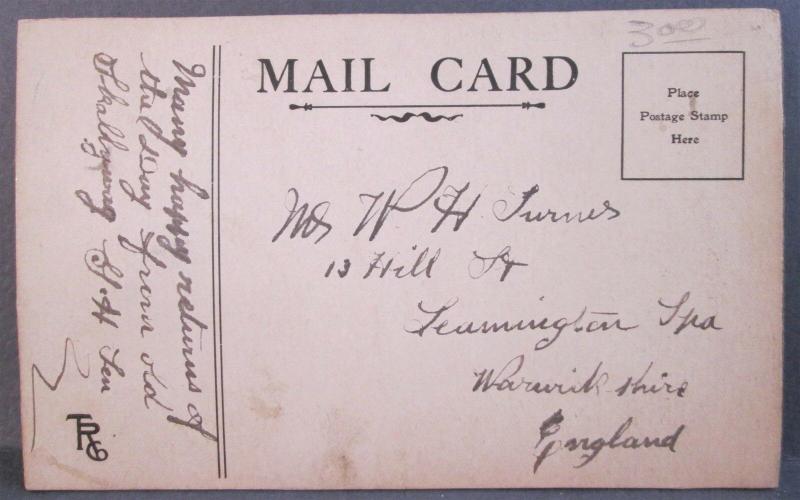 MAIL CARD
3.00
Place
Postage Stamp
Here
Many happy returns of
the Day from old
G. H Sen
Mrs W H Turner
13 Hill St
Leamington Spa
Warwick shire
England